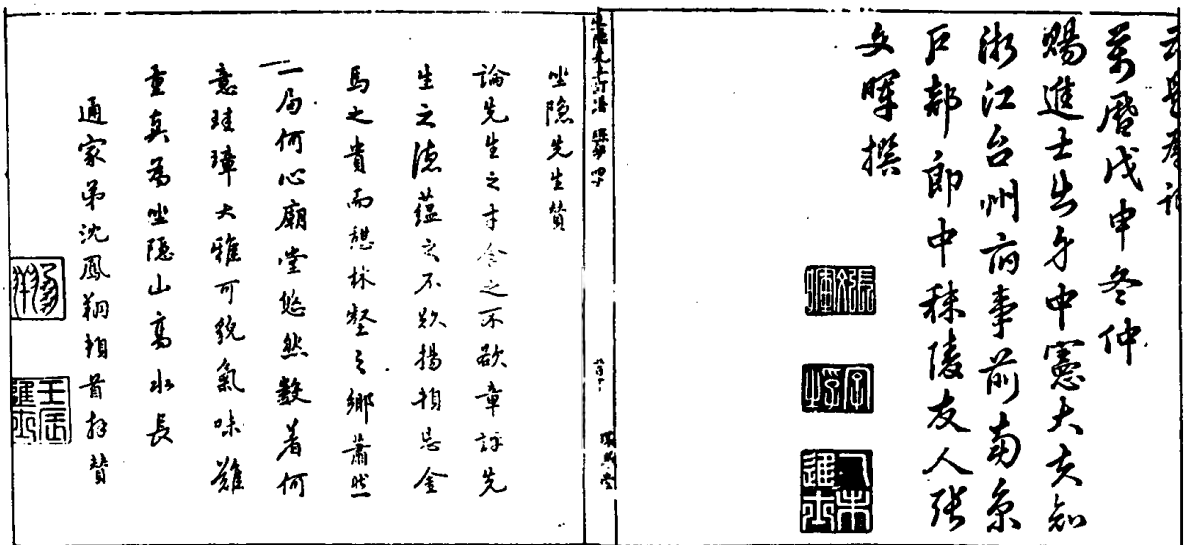 萬曆戊申冬仲
賜進士出身中憲大夫知
浙江台州府事前南京
戶部郎中秣陵友人張
文暉撰
坐隱先生訂譜
坐隱先生贊
論先生之才含之不欲章評先
生之德蘊之不欲揚頓忘金
馬之貴而憩林壑之鄉蕭然
一局何心廟堂悠然數着何
意珪璋大雅可貌氣味難
重真為坐隱山高水長
通家弟沈鳳翔頓首拜贊
壬辰進士